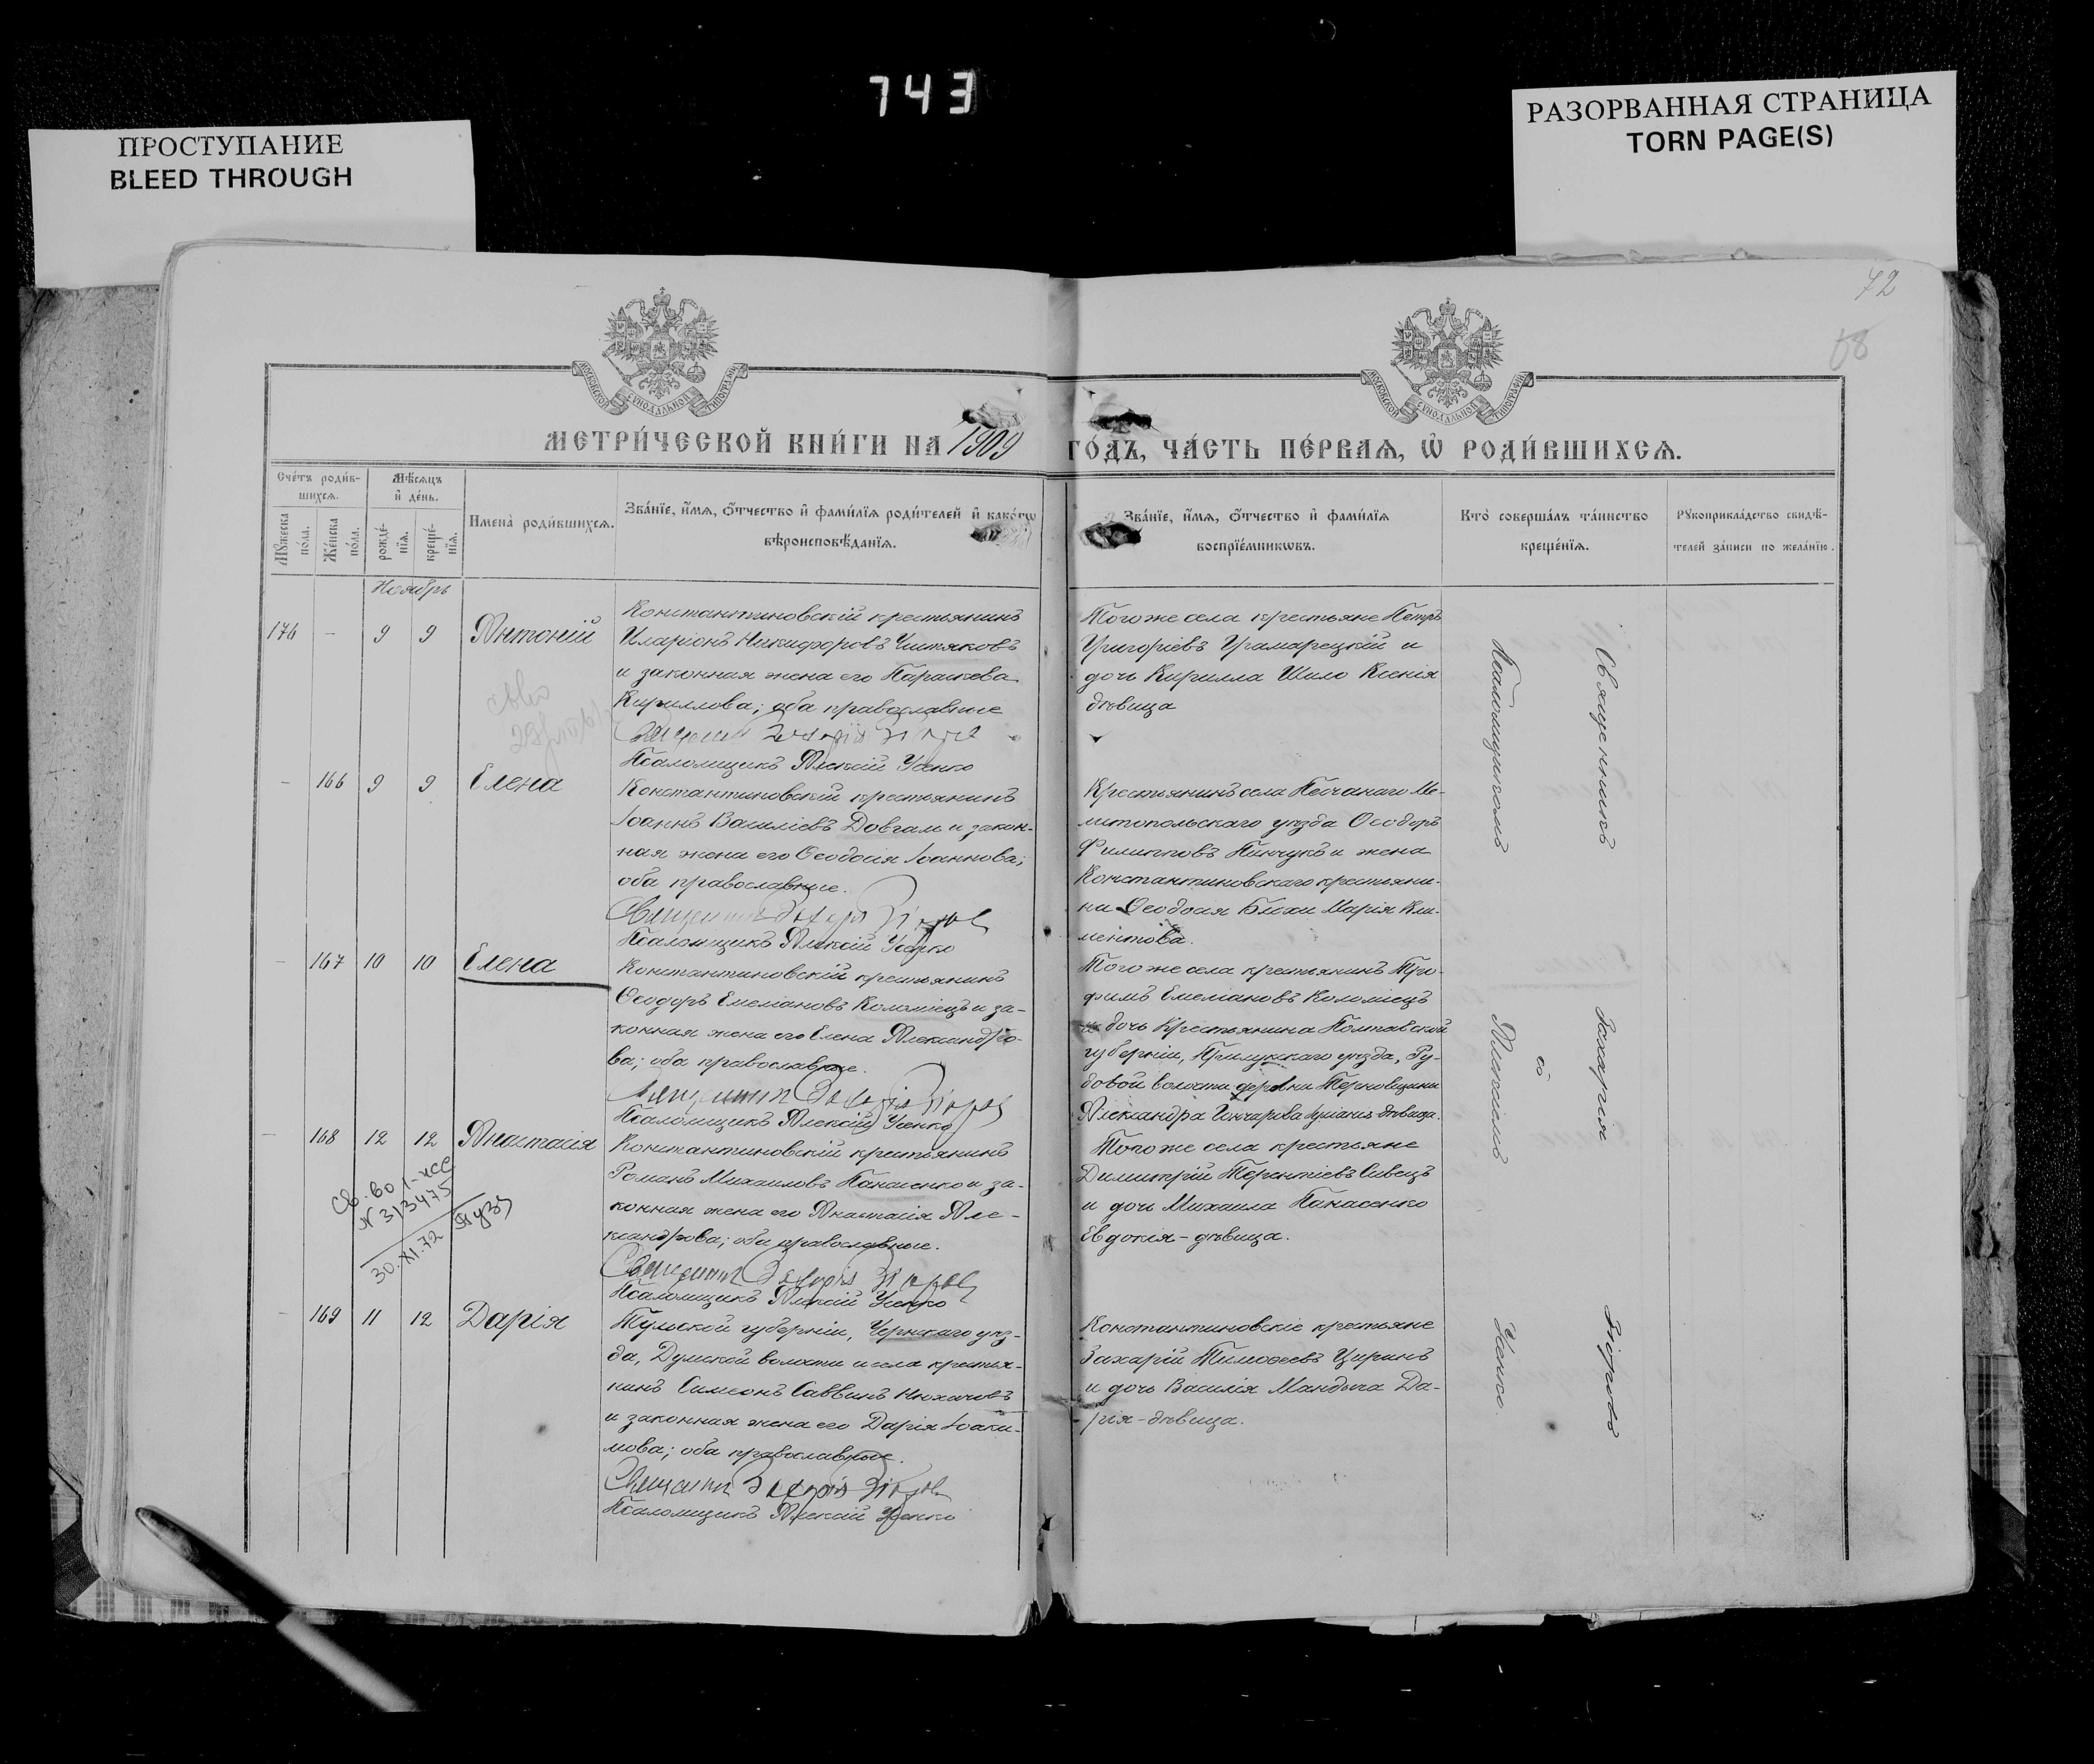 743
ПРОСТУПАНИЕ
BLEED THROUGH
РАЗОРВАННАЯ СТРАНИЦА
TORN PAGE(S)
72
68
МОСКОВСКОЙ СѴНОДАЛЬНОЙ ТИПОГРАФІИ
МОСКОВСКОЙ СѴНОДАЛЬНОЙ ТИПОГРАФІИ
МЕТРИ́ЧЕСКОЙ КНИ́ГИ НА 1909 ГО́ДЪ, ЧА́СТЬ ПЕ́РВАѦ, Ѡ҆ РОДИ́ВШИХСѦ.
Сче́тъ роди́в-
шихсѧ.
Мꙋ́жеска по́ла.
Же́нска по́ла.
Мѣ́сѧцъ
и҆ де́нь.
рожде́-
нїѧ.
креще́-
нїѧ.
Имена̀ роди́вшихсѧ.
Зва́нїе, и҆́мѧ, ѻ҆́тчество и҆ фами́лїѧ роди́телей и҆ како́гѡ
вѣроисповѣ́данїѧ.
Зва́нїе, и҆́мѧ, ѻ҆́тчество и҆ фами́лїѧ
воспрїе́мникѡвъ.
Кто̀ соверша́лъ та́инство
креще́нїѧ.
Рꙋкоприкла́дство свидѣ́-
телей за́писи по жела́нїю.
Ноябрь
176 - 9 9 Антоній
Константиновскій крестьянинъ
Иларіонъ Никифоровъ Чистяковъ
и законная жена его Параскева
Кириллова; оба православные
Священникъ Захарія
Псаломщикъ Алексій Усенко
Того же села крестьяне Петръ
Григоріевъ Грамарецкій и
дочь Кирилла Шило Ксенія
дѣвица
- 166 9 9 Елена
Константиновскій крестьянинъ
Іоаннъ Василіевъ Довгаль и закон-
ная жена его Ѳеодосія Іоаннова;
оба православные.
Священникъ Захарія
Псаломщикъ Алексій Усенко
Крестьянинъ села Песчанаго Ме-
литопольскаго уѣзда Ѳеодоръ
Филипповъ Пинчукъ и жена
Константиновскаго крестьяни-
на Ѳеодосія Блохи Марія Кли-
ментова.
- 167 10 10 Елена
Константиновскій крестьянинъ
Ѳеодоръ Емеліановъ Коломіецъ и за-
конная жена его Елена Александро-
ва; оба православные.
Священникъ Захарія
Псаломщикъ Алексій Усенко
Того же села крестьянинъ Тро-
фимъ Емеліановъ Коломіецъ
и дочь крестьянина Полтавской
губерніи, Прилукскаго уѣзда, Ру-
довой волости деревни Терновщины
Александра Гончарова дѣвица.
- 168 12 12 Анастасія
Св-во I-ЖС
N 313475
30.XI.72
Константиновскій крестьянинъ
Романъ Михаиловъ Панасенко и за-
конная жена его Анастасія Але-
ксандрова; оба православные.
Священникъ Захарія
Псаломщикъ Алексій Усенко
Того же села крестьяне
Димитрій Терентіевъ Сивецъ
и дочь Михаила Панасенко
Евдокія - дѣвица.
- 169 11 12 Дарія
Тульской губерніи, Чернскаго уѣз-
да, Думской волости и села крестья-
нинъ Симеонъ Саввинъ Нюхачовъ
и законная жена его Дарія Іоаки-
мова; оба православные.
Священникъ Захарія
Псаломщикъ Алексій Усенко
Константиновскіе крестьяне
Захарій Тимоѳеевъ Циринъ
и дочь Василія Мандыча Да-
рія - дѣвица.
Священникъ Захарія
съ
Псаломщикомъ Алексіемъ Усенко.